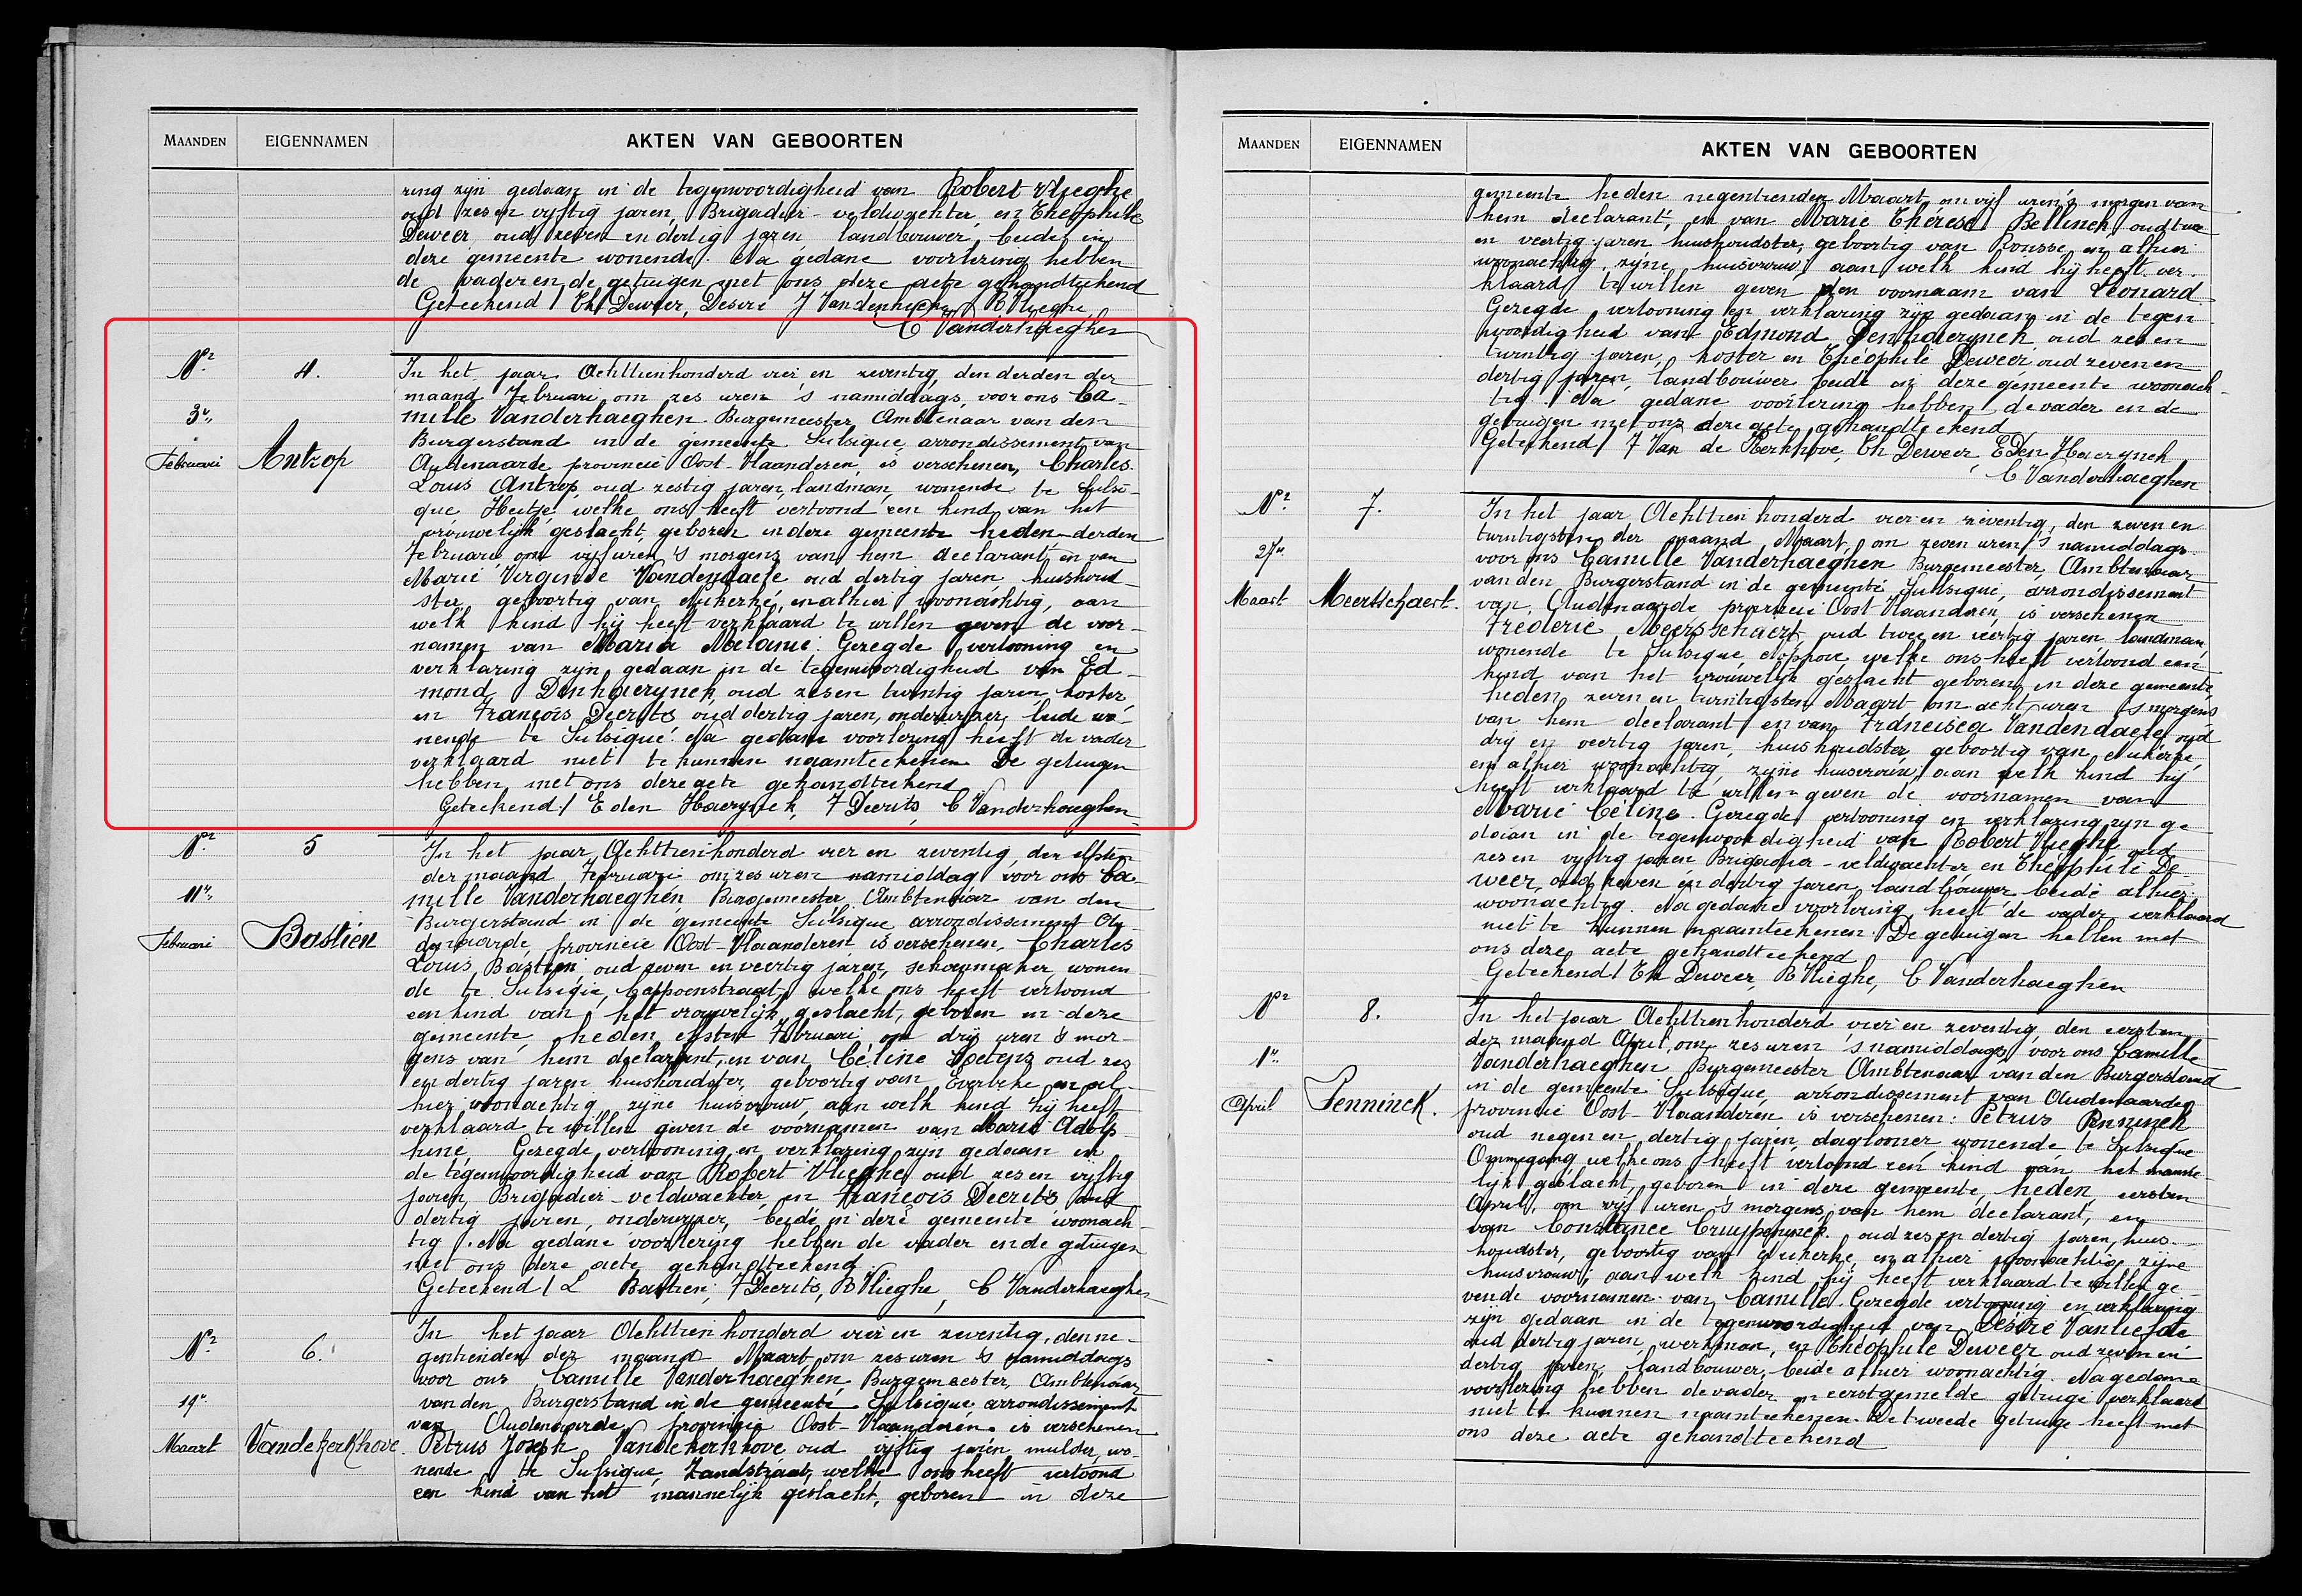 MAANDEN EIGENNAMEN AKTEN VAN GEBOORTEN
ring zijn gedaan in de tegenwoordigheid van Robert Vlieghe
oud zes en vijftig jaren, Brigadier-veldwachter, en Théophile
Deweer, oud zeven en dertig jaren, landbouwer, beide in
deze gemeente wonende. Na gedane voorlezing hebben
de vader en de getuigen met ons deze acte gehandteekend
Geteekend / Th Deweer, Desiré J Vandenhecke, R Vlieghe,
C Vanderhaeghen
Nr 4. In het jaar Achttienhonderd vier en zeventig, den derden der
maand Februari om zes uren 's namiddags, voor ons Ca-
3n mille Vanderhaeghen Burgemeester, Ambtenaar van den
Burgerstand in de gemeente Sulsique, arrondissement van
Februari Antrop Audenaarde, provincie Oost-Vlaanderen, is verschenen, Charles
Louis Antrop, oud zestig jaren, landman, wonende te Sulsi-
que Heetje welke ons heeft vertoond een kind van het
vrouwelijk geslacht, geboren in deze gemeente heden, derden
Februari, om vijf uren 's morgens van hem declarant, en van
Marie Virginie Vandendaele oud dertig jaren huishoud-
ster, geboortig van Nukerke, en alhier woonachtig, aan
welk kind hij heeft verklaard te willen geven de voor-
namen van Maria Melanie. Gezegde vertooning en
verklaring zijn gedaan in de tegenwoordigheid van Ed-
mond Denhaerynck, oud zes en twintig jaren, koster,
en François Decrits oud dertig jaren, onderwijzer, beide wo-
nende te Sulsique. Na gedane voorlezing heeft de vader
verklaard niet te kunnen naamteekenen De getuigen
hebben met ons deze acte gehandteekend
Geteekend / E den Haerynck, F Decrits, C Vanderhaeghen
Nr 5 In het jaar Achttienhonderd vier en zeventig, den elfsten
der maand Februari om zes uren namiddag voor ons Ca-
11n mille Vanderhaeghen Burgemeester, Ambtenaar van den
Burgerstand in de gemeente Sulsique arrondissement Au-
Februari Bastien denaarde, provincie Oost-Vlaanderen is verschenen, Charles
Louis Bastien, oud zeven en veertig jaren, schoenmaker, wonen-
de te Sulsique, welke ons heeft vertoond
een kind van het vrouwelijk geslacht, geboren in deze
gemeente, heden, elfsten Februari, om drij uren 's mor-
gens van hem declarant, en van Céline Voetens oud zes
en dertig jaren huishoudster, geboortig van Everbeke en al-
hier woonachtig, zijne huisvrouw, aan welk kind hij heeft
verklaard te willen geven de voornamen van Marie Adolp-
hine, Gezegde vertooning en verklaring zijn gedaan in
de tegenwoordigheid van Robert Vlieghe oud zes en vijftig
jaren, Brigadier-veldwachter, en François Decrits oud
dertig jaren, onderwijzer, beide in deze gemeente woonach-
tig. Na gedane voorlezing hebben de vader en de getuigen
met ons deze acte gehandteekend
Geteekend / L Bastien, F Decrits, R Vlieghe, C Vanderhaeghen
Nr 6. In het jaar Achttienhonderd vier en zeventig, den ne-
gentienden der maand Maart, om zes uren 's namiddags
voor ons Camille Vanderhaeghen, Burgemeester, Ambtenaar
19n van den Burgerstand in de gemeente Sulsique, arrondissement
van Audenaarde, provincie Oost-Vlaanderen is verschenen
Maart Vandekerkhove. Petrus Joseph Vandekerkhove oud vijftig jaren, mulder, wo-
nende te Sulsique, Zandstraat, welke ons heeft vertoond
een kind van het mannelijk geslacht, geboren in deze
MAANDEN EIGENNAMEN AKTEN VAN GEBOORTEN
gemeente heden negentienden Maart, om vijf uren 's morgen van
hem declarant, en van Marie Thérèse Bellinck, oud twee
en veertig jaren huishoudster, geboortig van Ronsse, en alhier
woonachtig, zijne huisvrouw, aan welk kind hij heeft ver-
klaard te willen geven den voornaam van Léonard
Gezegde vertooning en verklaring zijn gedaan in de tegen-
woordigheid van Edmond Denhaerynck oud zes en
twintig jaren, koster en Théophile Deweer, oud zeven en
dertig jaren, landbouwer beide in deze gemeente woonach-
tig. Na gedane voorlezing hebben de vader en de
getuigen met ons deze acte gehandteekend
Geteekend / F Van de Kerkhove, Th Deweer, E Den Haerynck
C Vanderhaeghen
Nr 7. In het jaar Achttienhonderd vier en zeventig, den zeven en
twintigsten der maand Maart, om zeven uren 's namiddags
27n voor ons Camille Vanderhaeghen Burgemeester, Ambtenaar
van den Burgerstand in de gemeente Sulsique, arrondissement
Maart Meertschaert. van Audenaarde provincie Oost-Vlaanderen, is verschenen
Frederic Meersschaert, oud twee en veertig jaren landman,
wonende te Sulsique, welke ons heeft vertoond een
kind van het vrouwelijk geslacht geboren in deze gemeente,
heden zeven en twintigsten Maart om acht uren 's morgens
van hem declarant en van Francisca Vandendaele oud
drij en veertig jaren, huishoudster, geboortig van Nukerke,
en alhier woonachtig, zijne huisvrouw, aan welk kind hij
heeft verklaard te willen geven de voornamen van
Marie Céline. Gezegde vertooning en verklaring zijn ge-
daan in de tegenwoordigheid van Robert Vlieghe oud
zes en vijftig jaren Brigadier-veldwachter, en Théophile De-
weer, oud zeven en dertig jaren, landbouwer, beide alhier
woonachtig. Na gedane voorlezing heeft de vader verklaard
niet te kunnen naamteekenen. De getuigen hebben met
ons deze acte gehandteekend
Geteekend / Th Deweer, R Vlieghe, C Vanderhaeghen
Nr 8. In het jaar Achttienhonderd vier en zeventig, den eersten
der maand April, om zes uren 's namiddags, voor ons Camille
1n Vanderhaeghen Burgemeester Ambtenaar van den Burgerstand
in de gemeente Sulsique, arrondissement van Audenaarde
April Penninck. provincie Oost-Vlaanderen is verschenen: Petrus Penninck
oud negen en dertig jaren, daglooner, wonende te Sulsique
Ommegang, welke ons heeft vertoond een kind van het manne-
lijk geslacht, geboren in deze gemeente, heden, eersten
April, om vijf uren 's morgens, van hem declarant, en
van Constance Cruypenninck. oud zes en dertig jaren, huis-
houdster, geboortig van Nukerke, en alhier woonachtig, zijne
huisvrouw, aan welk kind hij heeft verklaard te willen ge-
ven de voornamen van Camille. Gezegde vertooning en verklaring
zijn gedaan in de tegenwoordigheid van Desiré Vanliefde
oud dertig jaren, werkman, en Théophile Deweer oud zeven en
dertig jaren, landbouwer, beide alhier woonachtig. Na gedane
voorlezing hebben de vader en eerstgemelde getuige verklaard
niet te kunnen naamteekenen. De tweede getuige heeft met
ons deze acte gehandteekend